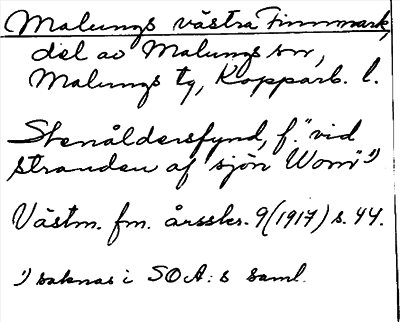 Malungs västra Finnmark,
del av Malungs sn,
Malungs tg, Kopparb. l.
Stenåldersfynd, f. "vid
stranden af sjön Wom" ¹)
Västm. fm. årsskr. 9 (1917) s. 44.
¹) saknas i SOA:s saml.